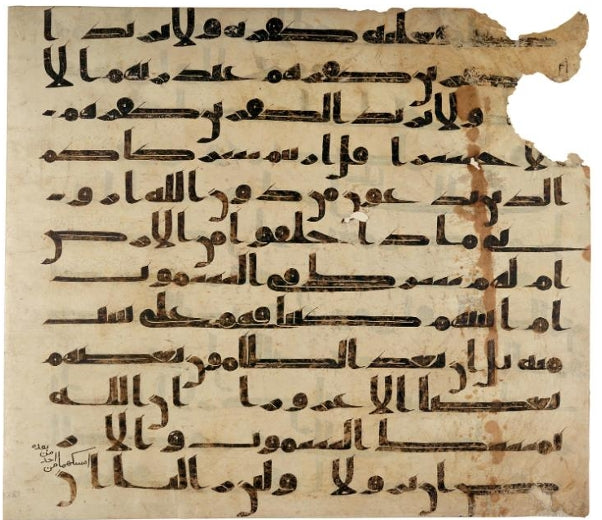 فعليه كفره ولا يزيد ا
لكفرين كفرهم عند ربهم الا
ولا يزيد الكفرين كفرهم
الا خسرا قل اريتم شركاكم
الذين تدعون من دون الله ارو
ني ماذا خلقوا من الارض
ام لهم شرك في السموت
ام اتينهم كتبا فهم على بينت
منه بل ان يعد الظلمون بعضهم
بعضا الا غرورا ان الله
يمسك السموت والار
ض ان تزولا ولئن زالتا ان
امسكهما من
احد
من
بعده